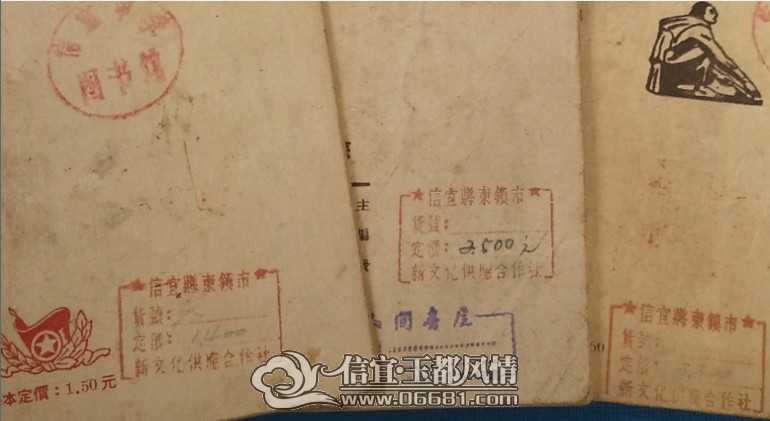 图书馆
本定價：1.50元
★信宜縣東鎮市★
貨號：
定價：1400
新文化供應合作社
主編
★信宜縣東鎮市★
貨號：
定價：2500元
新文化供應合作社
間書屋
★信宜縣東鎮市★
貨號：
定價：
新文化供應合作社
50
信宜·玉都风情
www.06681.com